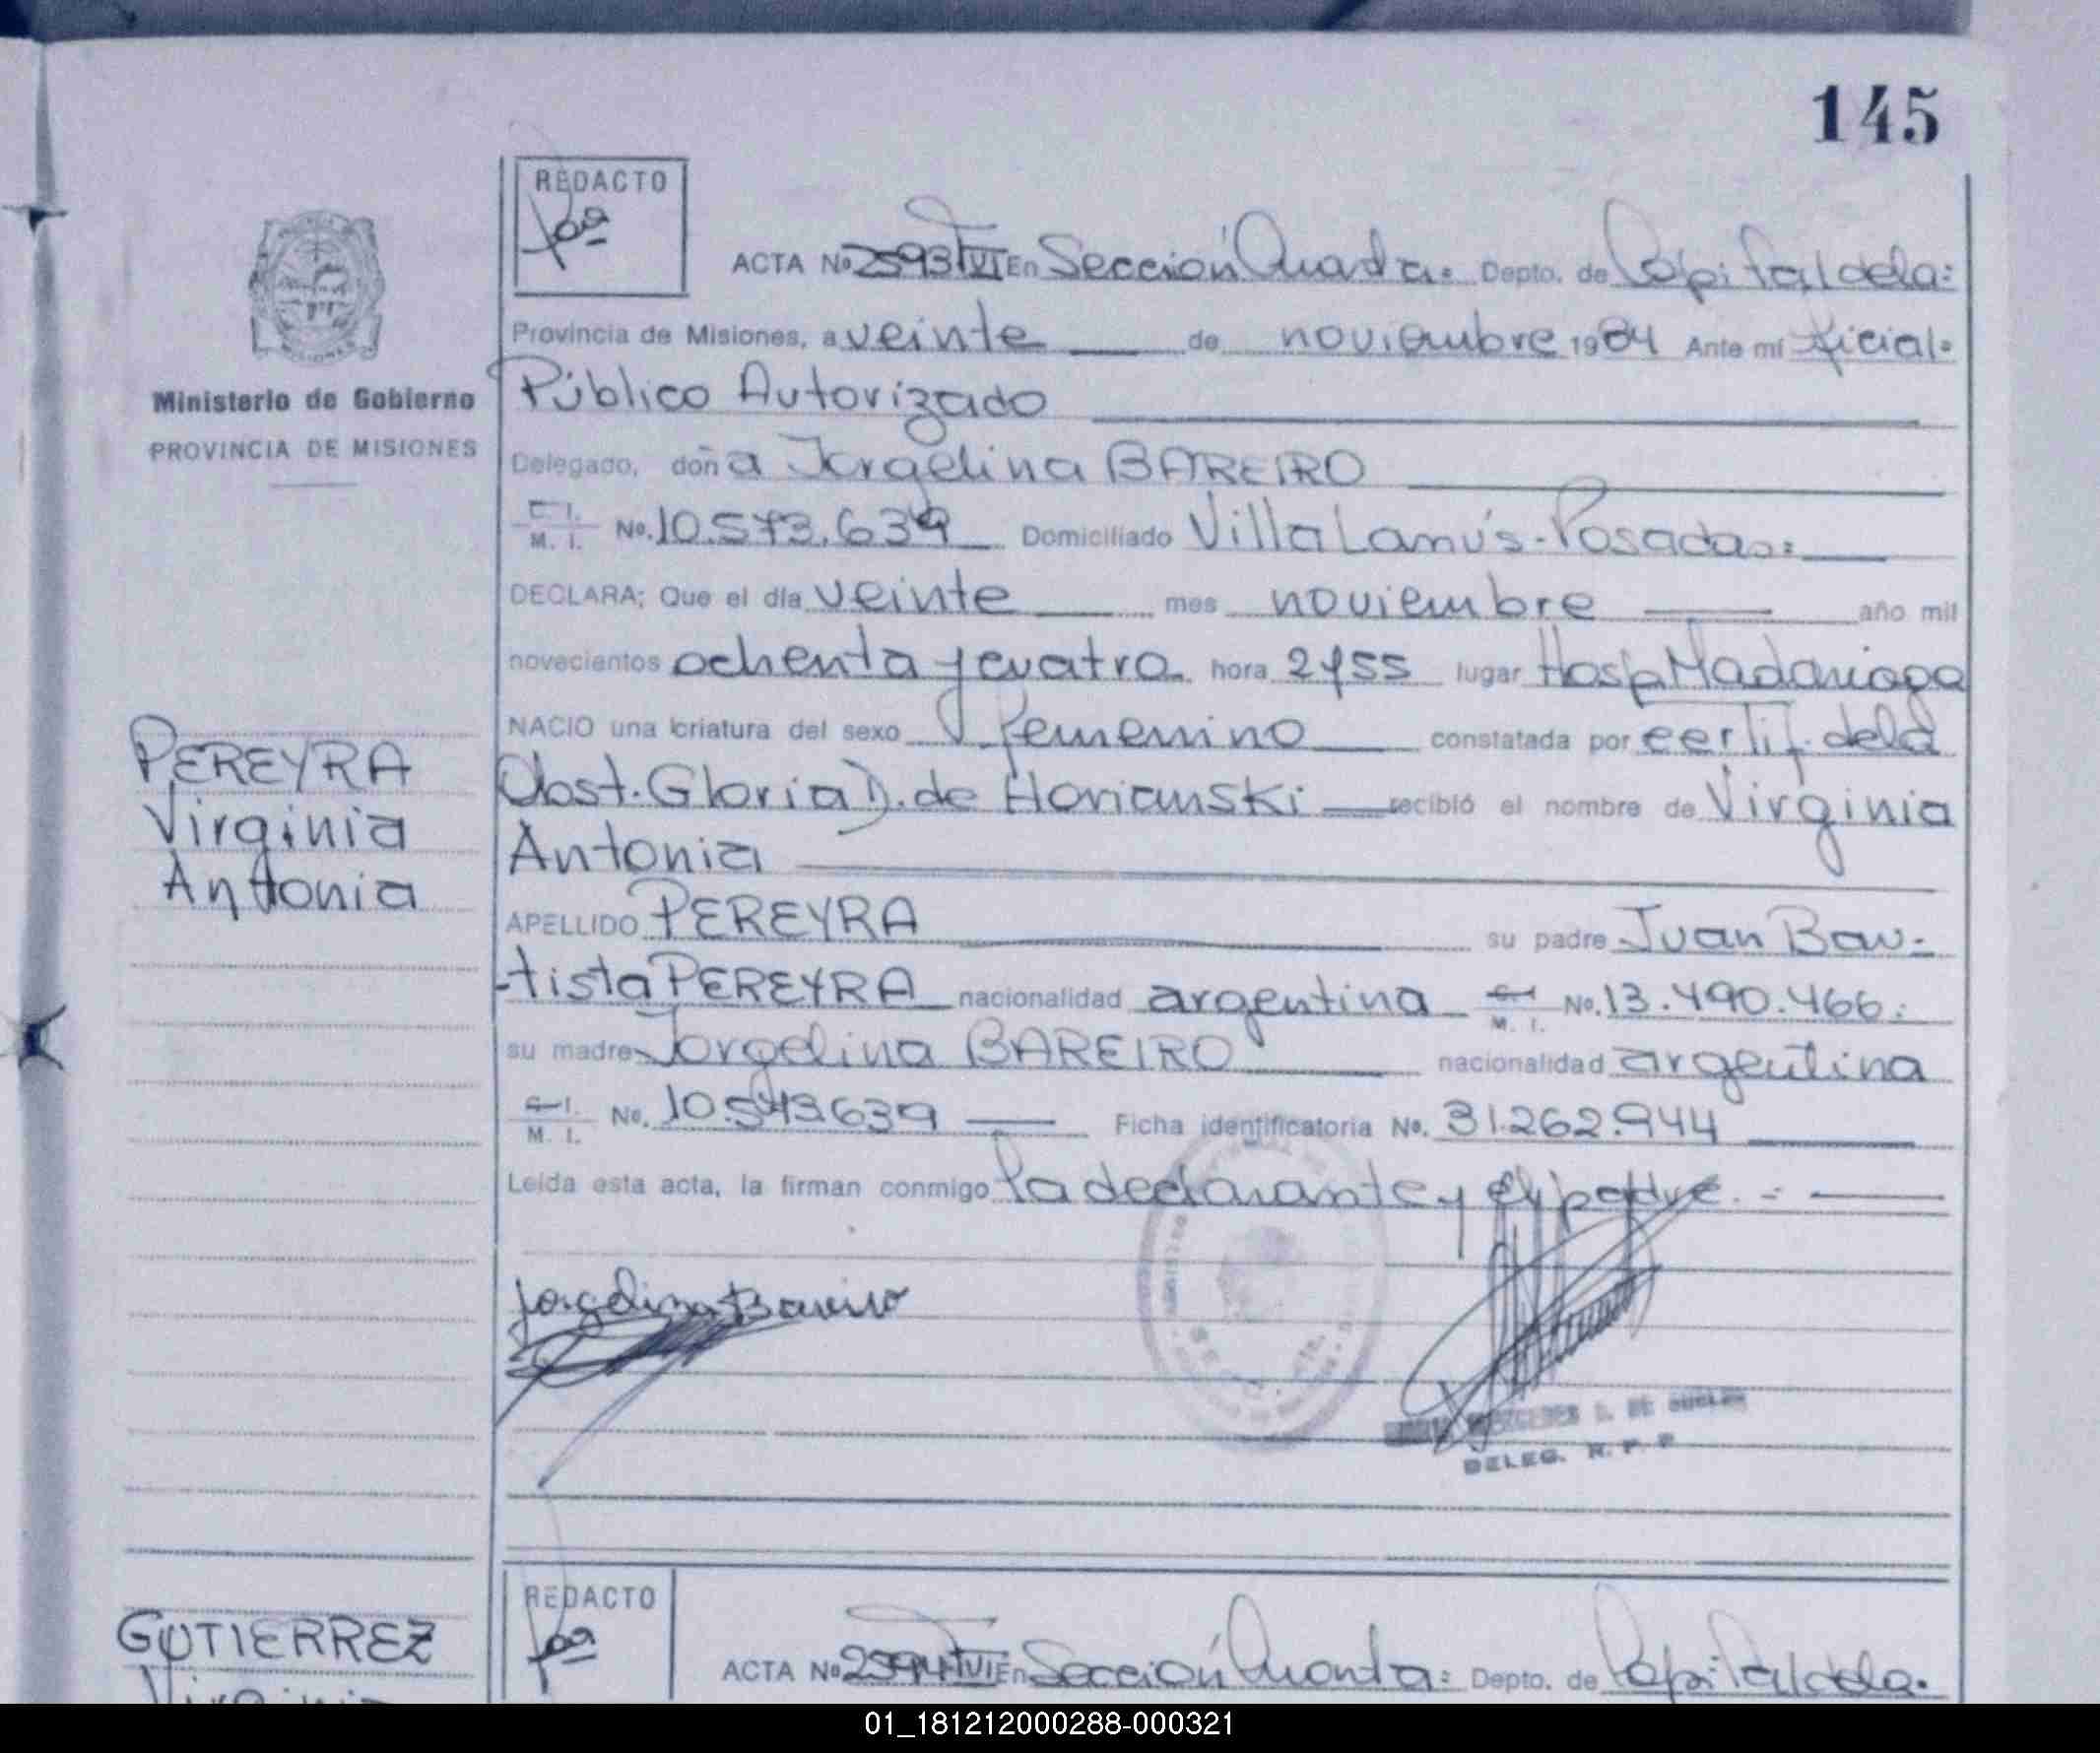 145
REDACTO
ACTA No 2593 TVI En Sección Cuarta= Depto. de Capital dela=
Provincia de Misiones, a veinte de noviembre 1984 Ante mí oficial=
Ministerio de Gobierno
Público Autorizado
PROVINCIA DE MISIONES
Delegado, doña Jorgelina BAREIRO
C. I. M. I. No. 10.573.639 Domiciliado Villa Lanús-Posadas=
DECLARA; Que el día veinte mes noviembre año mil
novecientos ochenta y cuatro hora 2y55 lugar Hosp Madariaga
NACIO una criatura del sexo femenino constatada por certif. dela
PEREYRA
Virginia
Antonia
Obst. Gloria D. de Horianski recibió el nombre de Virginia
Antonia
APELLIDO PEREYRA su padre Juan Bau-
tista PEREYRA nacionalidad argentina C. I. M. I. No. 13.490.466.
su madre Jorgelina BAREIRO nacionalidad argentina
C. I. M. I. No. 10.573.639 Ficha identificatoria No. 31.262.944
Leida esta acta, la firman conmigo la declarante y el padre. =
Jorgelina Bareiro
DELEG. R. P. P
REDACTO
GUTIERREZ
Virginia
ACTA No 2594 TVI En Sección Cuarta= Depto. de Capital dela.
01_181212000288-000321